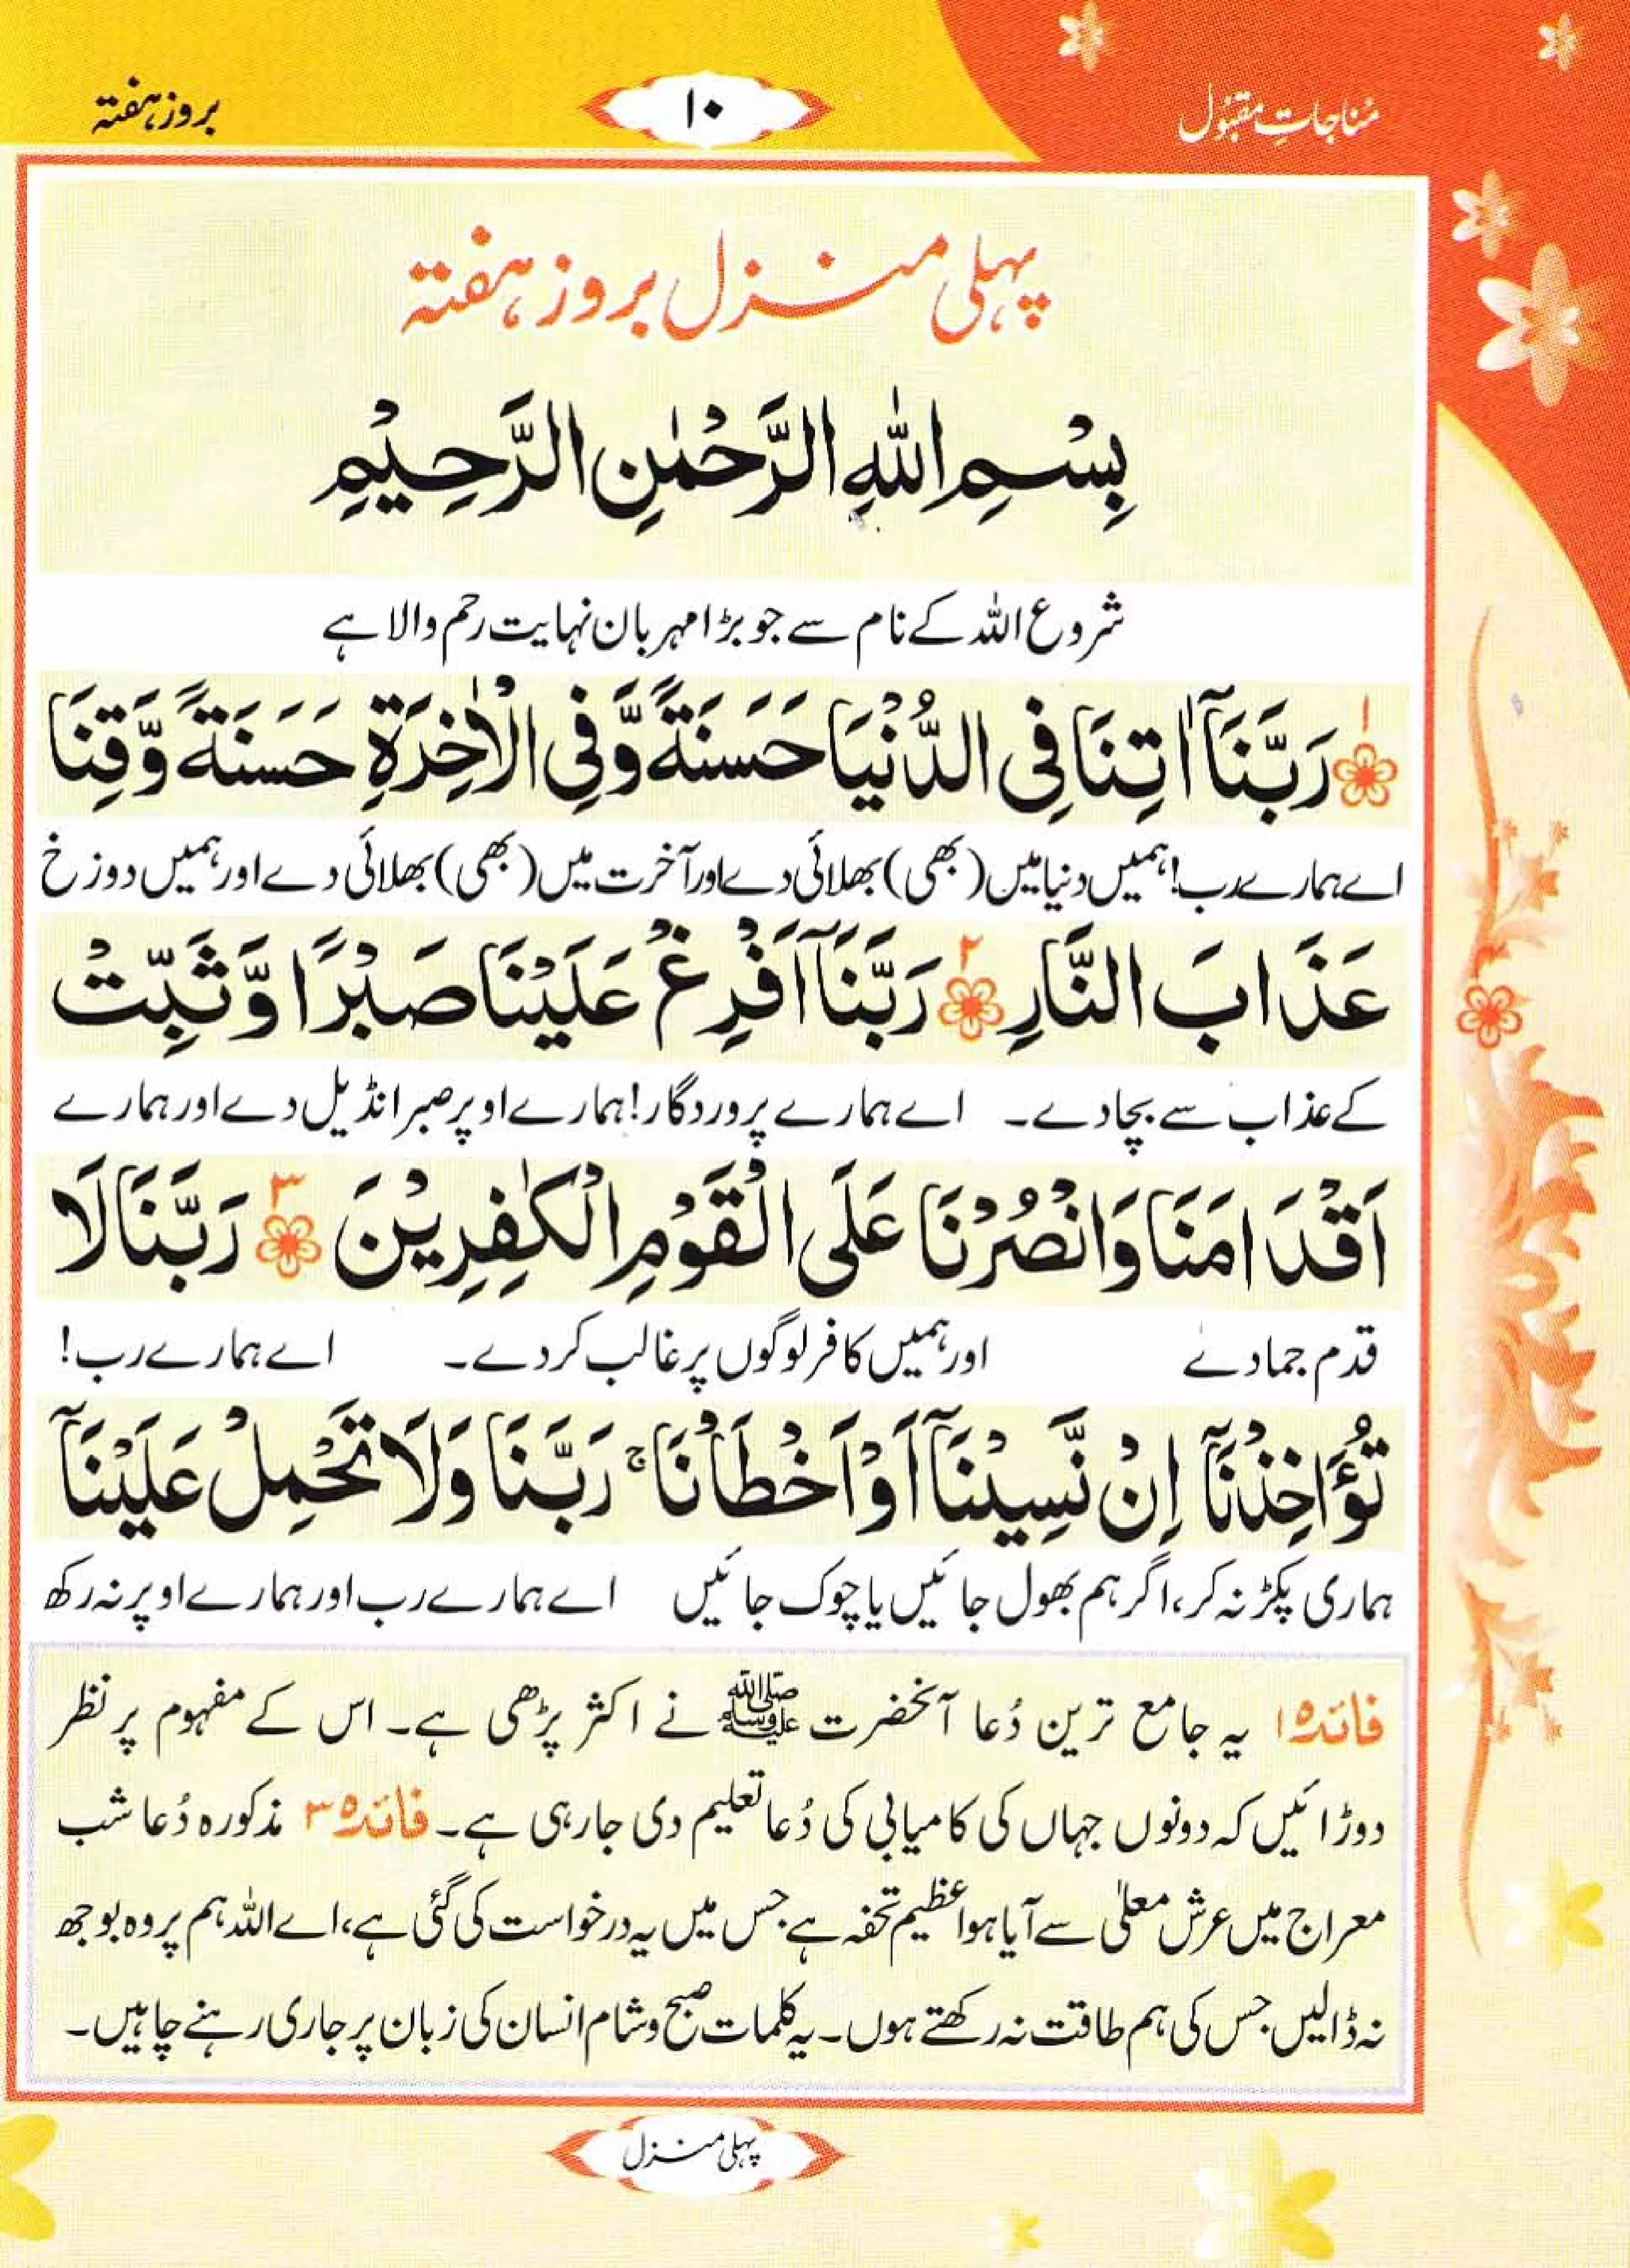 مُناجاتِ مقبُول
۱۰
بروز ہفتہ
پہلی منزل بروز ہفتہ
بِسْمِ اللّٰهِ الرَّحْمٰنِ الرَّحِيْمِ
شروع اللہ کے نام سے جو بڑا مہربان نہایت رحم والا ہے
۱ رَبَّنَآ اٰتِنَا فِى الدُّنْيَا حَسَنَةً وَّفِى الْاٰخِرَةِ حَسَنَةً وَّقِنَا
اے ہمارے رب! ہمیں دنیا میں (بھی) بھلائی دے اور آخرت میں (بھی) بھلائی دے اور ہمیں دوزخ
عَذَابَ النَّارِ ۲ رَبَّنَآ اَفْرِغْ عَلَيْنَا صَبْرًا وَّثَبِّتْ
کے عذاب سے بچا دے۔ اے ہمارے پروردگار! ہمارے اوپر صبر انڈیل دے اور ہمارے
اَقْدَامَنَا وَانْصُرْنَا عَلَى الْقَوْمِ الْكٰفِرِيْنَ ۳ رَبَّنَا لَا
قدم جمادے اور ہمیں کافر لوگوں پر غالب کردے۔ اے ہمارے رب!
تُؤَاخِذْنَآ اِنْ نَّسِيْنَآ اَوْ اَخْطَاْنَا ۚ رَبَّنَا وَلَا تَحْمِلْ عَلَيْنَآ
ہماری پکڑ نہ کر، اگر ہم بھول جائیں یا چوک جائیں اے ہمارے رب اور ہمارے اوپر نہ رکھ
فائدہ۱ یہ جامع ترین دُعا آنحضرت ﷺ نے اکثر پڑھی ہے۔ اس کے مفہوم پر نظر
دوڑائیں کہ دونوں جہاں کی کامیابی کی دُعا تعلیم دی جارہی ہے۔ فائدہ۳ مذکورہ دُعا شب
معراج میں عرش معلٰی سے آیا ہوا عظیم تحفہ ہے جس میں یہ درخواست کی گئی ہے، اے اللہ ہم پر وہ بوجھ
نہ ڈالیں جس کی ہم طاقت نہ رکھتے ہوں۔ یہ کلمات صبح و شام انسان کی زبان پر جاری رہنے چاہیں۔
پہلی منزل